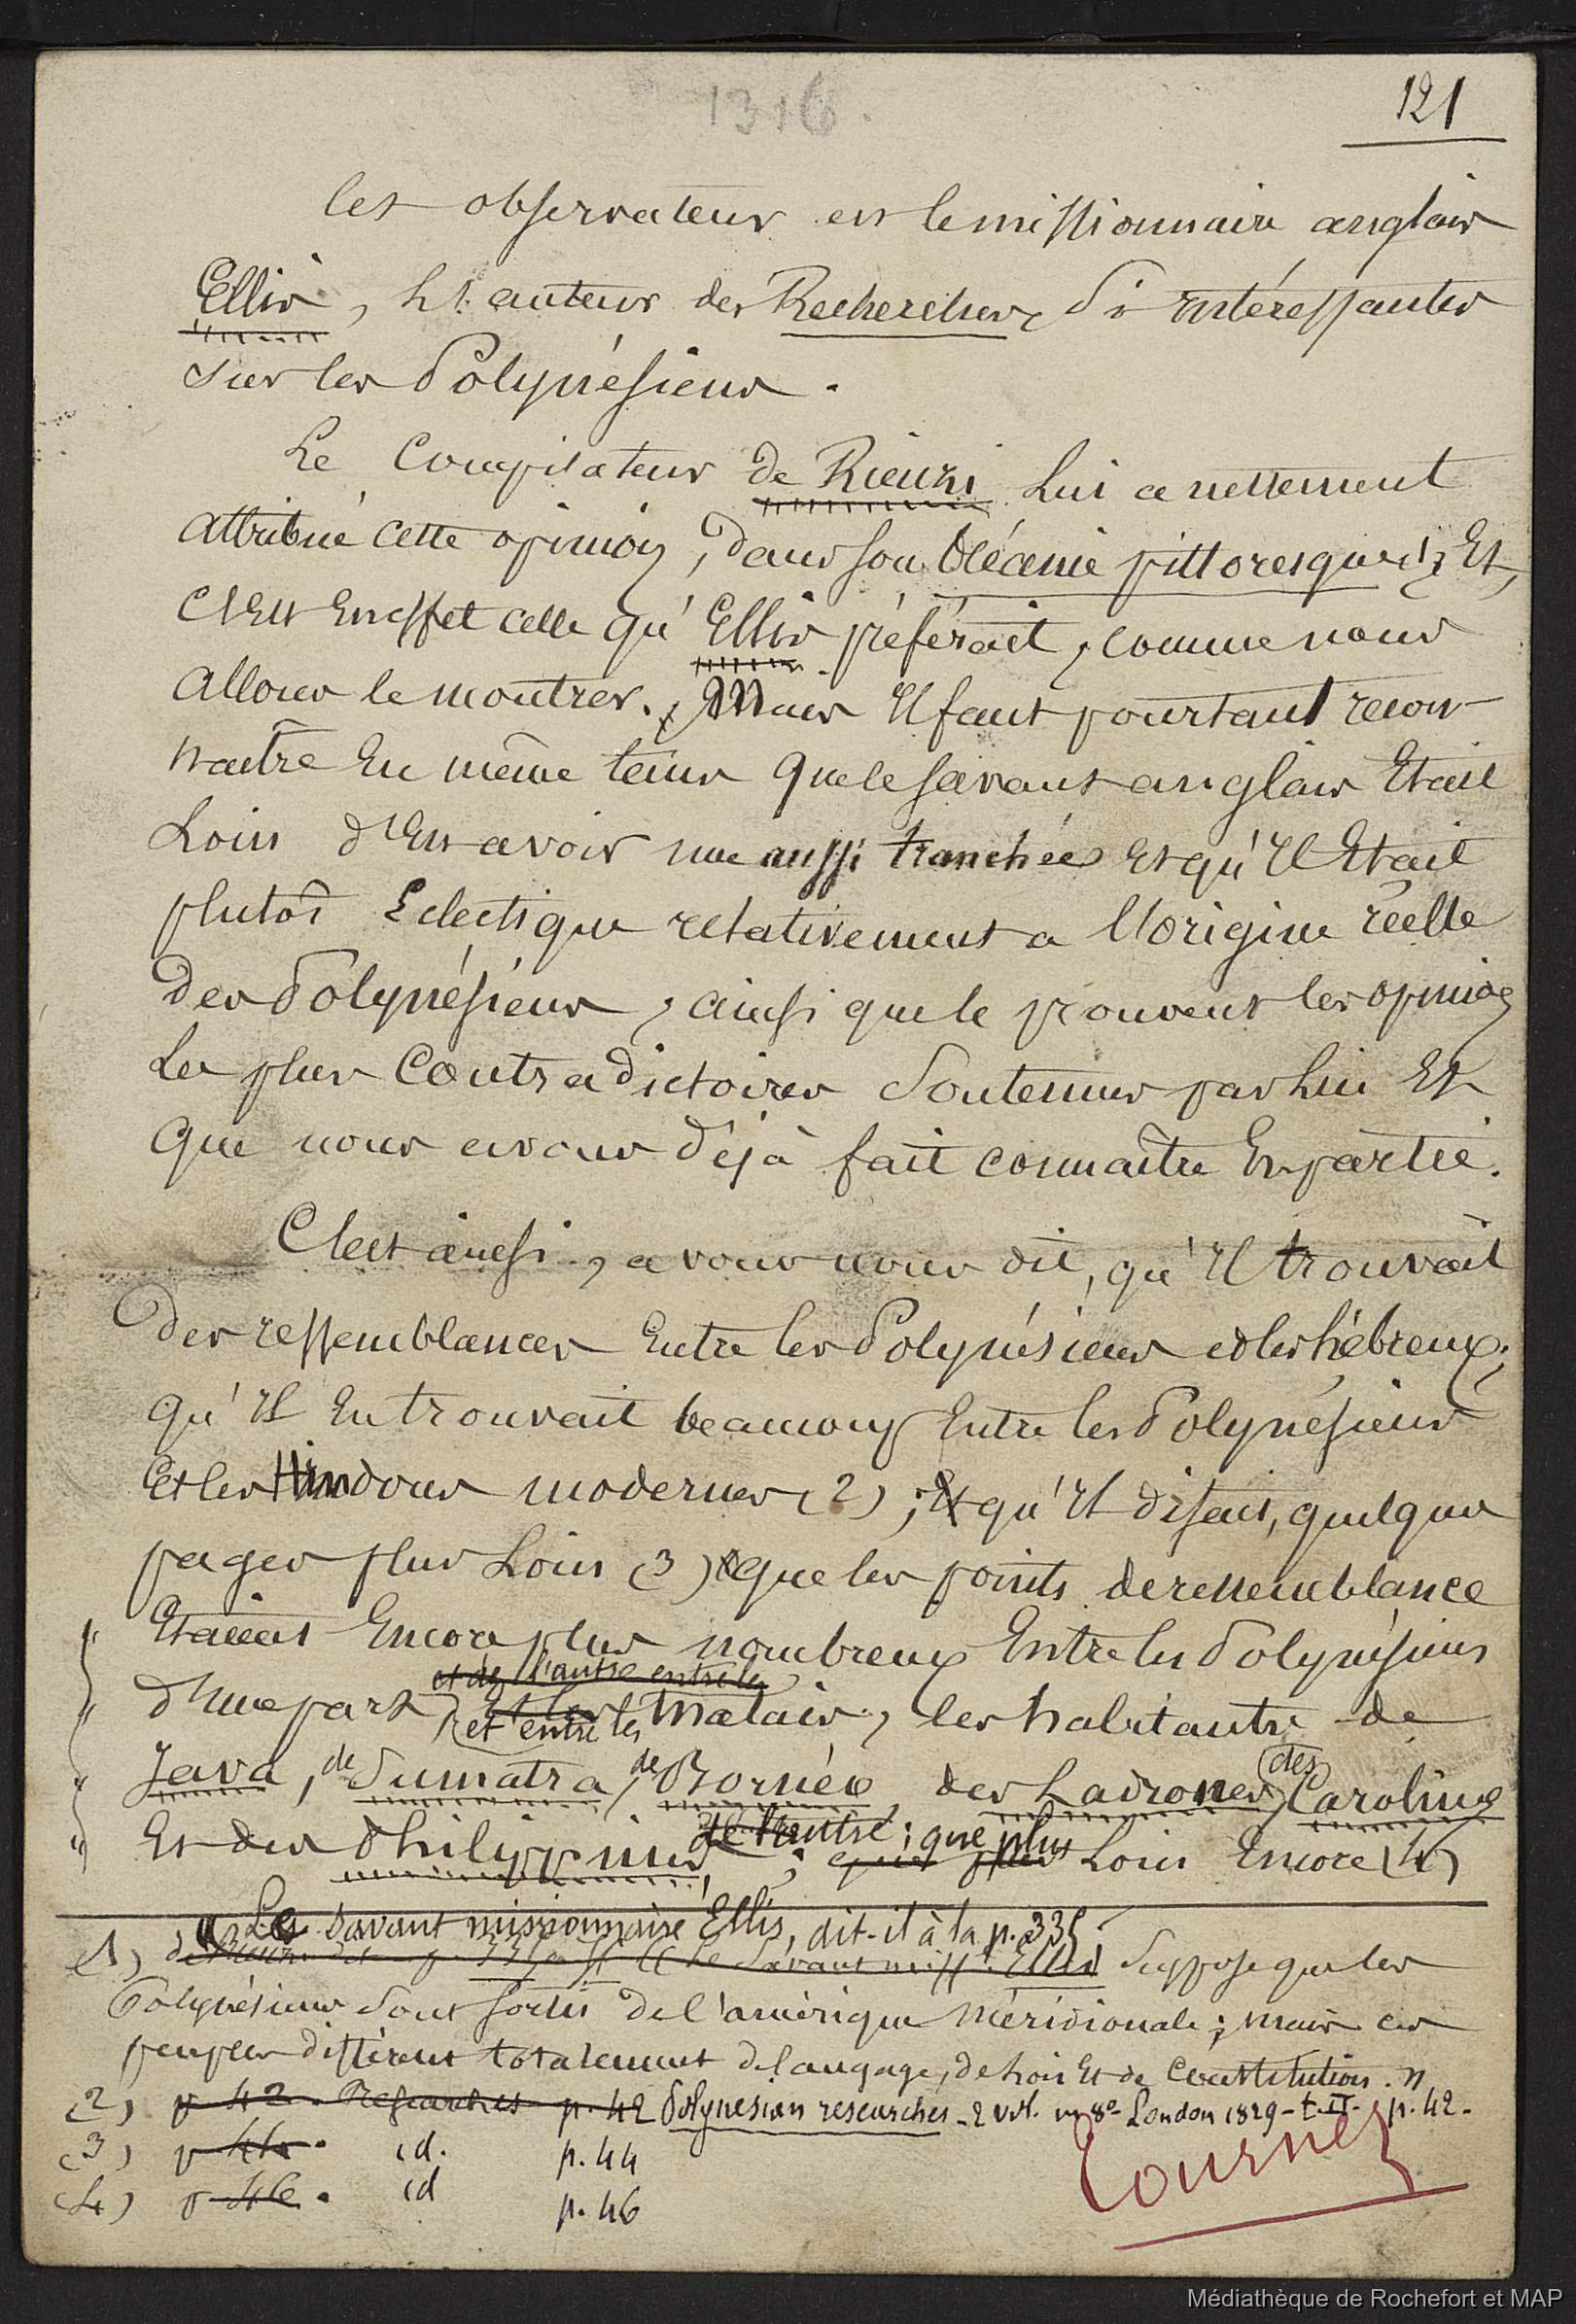 1316.
121
Cet observateur est le missionnaire anglais
Ellis, l'auteur des Recherches si intéressantes
sur les Polynésiens.
Le Compilateur de Rienzi lui a nettement
attribué cette opinion, dans son Océanie pittoresque (1); Et,
C'est En effet celle qu'Ellis préférait, comme nous
allons le montrer. Mais Il faut pourtant recon-
naître En même tems que le savant anglais Etait
Loin d'En avoir une aussi tranchée et qu'Il Etait
plutôt Eclectique relativement a l'origine réelle
des Polynésiens, ainsi que le prouvent les opinions
les plus Contradictoires soutenues par lui Et
que nous avons déjà fait connaître En partie.
C'est ainsi, avons nous dit, qu'Il trouvait
des ressemblances Entre les Polynésiens et les hébreux;
qu'Il En trouvait beaucoup Entre les Polynésiens
Et les Hindous modernes (2); Et qu'Il disait, quelques
pages plus Loin (3) que les points de ressemblance
Etaient Encore plus nombreux Entre les Polynésiens
et de l'autre entre les
d'une part, Et les Malais, les habitants de
et entre les
Java, de Sumatra, de Bornéo, des Ladrones, des Carolines
Et des Philippines, de l'autre; que plus
; que plus Loin Encore (4)
« Le savant missionnaire Ellis, dit-il à la p. 335
(1) de Rienzi dit p. 335 « Le Savant miss. Ellis suppose que les
Polynésiens sont sortis de l'amérique méridionale; mais ces
peuples différent totalement de langage, de lois Et de Constitution. »
(2) p 42. Researches p. 42 Polynesian researches - 2 vol. in 8º London 1829 - t. II. p. 42.
(3) p 44. id. p. 44
(4) p 46. id p. 46
Tournez
Médiathèque de Rochefort et MAP